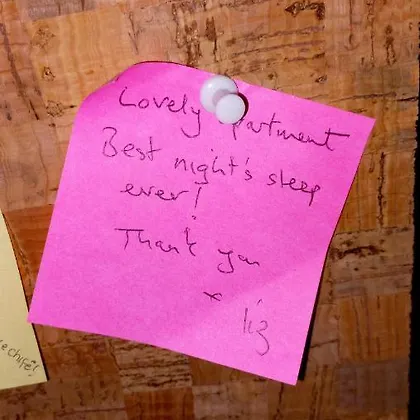 Lovely partment
Best night's sleep
ever!
Thank you
x
liz